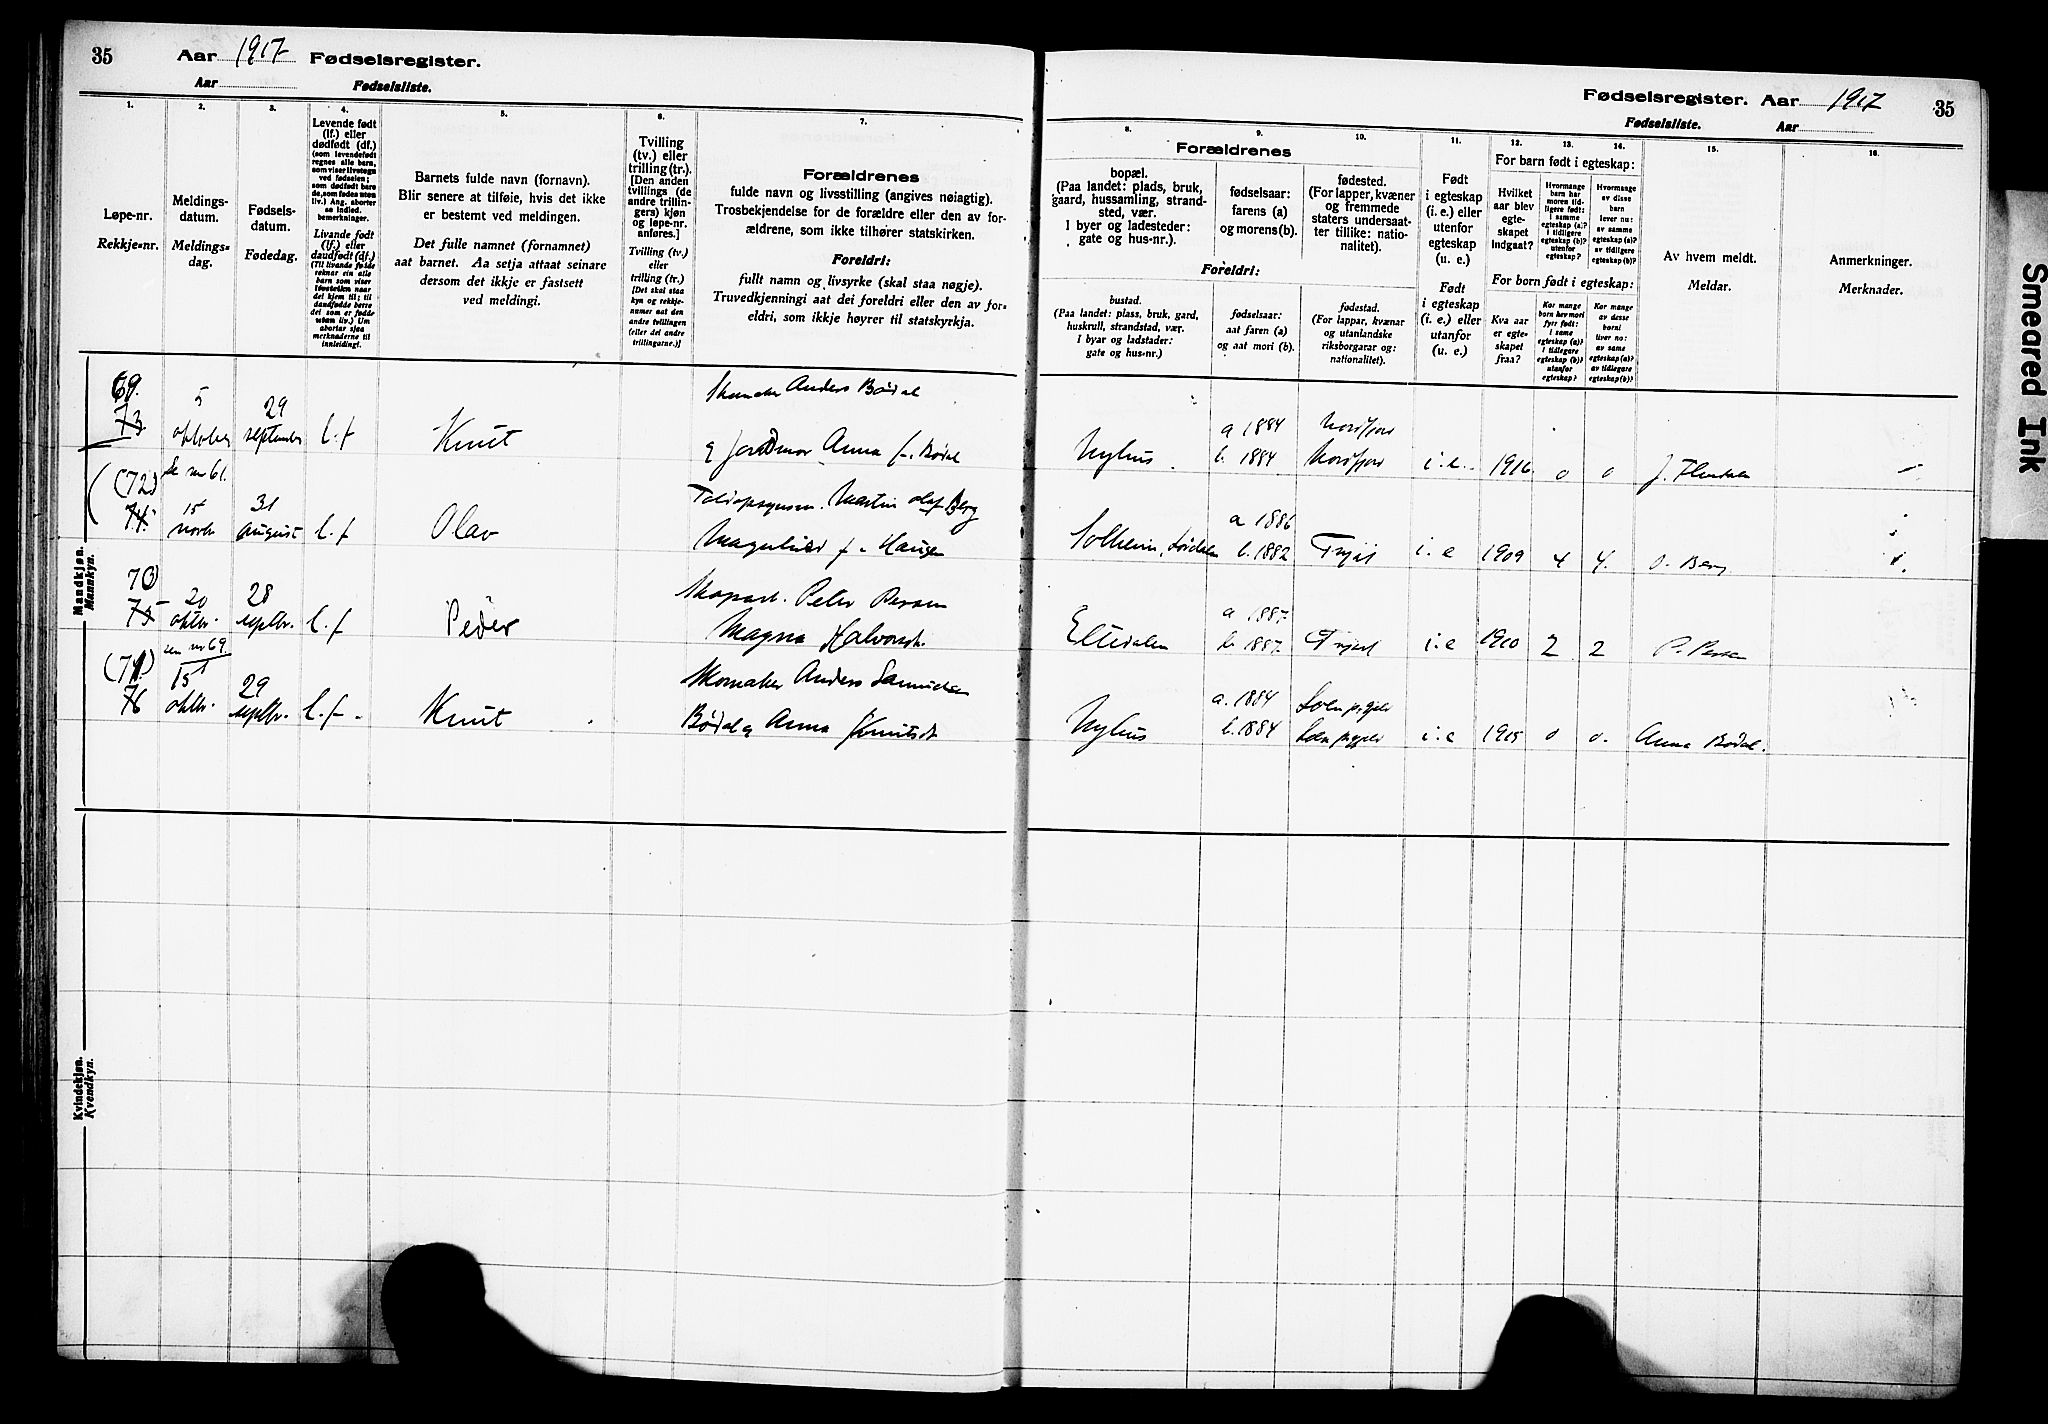 35
Aar 1917 Fødselsregister.
Aar Fødselsliste.
1.
2.
3.
4.
5.
6.
7.
Løpe-nr.
Rekkje-nr.
Meldings-
datum.
Meldings-
dag.
Fødsels-
datum.
Fødedag.
Levende født
(lf.) eller
dødfødt (df.)
(som levendefødt
regnes alle barn,
som viser livstegn
ved fødselen;
som dødfødt bare
de, som fødes uten
liv.) Ang. aborter
se indled.
bemerkninger.
Livande født
(lf.) eller
daudfødt (df.)
Barnets fulde navn (fornavn).
Blir senere at tilføie, hvis det ikke
er bestemt ved meldingen.
Det fulle namnet (fornamnet)
aat barnet. Aa setja attaat seinare
dersom det ikkje er fastsett
ved meldingi.
Tvilling
(tv.) eller
trilling (tr.).
[Den anden
tvillings (de
andre trillin-
gers) kjøn
og løpe-nr.
anføres.]
Tvilling (tv.)
eller
trilling (tr.)
[Det skal staa
kyn og rekkje-
numer aat den
andre tvillingen
(eller dei andre
trillingarne.)]
Forældrenes
fulde navn og livsstilling (angives nøiagtig).
Trosbekjendelse for de forældre eller den av for-
ældrene, som ikke tilhører statskirken.
Foreldri:
fullt namn og livsyrke (skal staa nøgje).
Truvedkjenningi aat dei foreldri eller den av for-
eldri, som ikkje høyrer til statskyrkja.
Fødselsregister. Aar 1917
35
Fødselsliste. Aar
8.
9.
10.
11.
12.
13.
14.
15.
16.
Forældrenes
bopæl.
(Paa landet: plads, bruk,
gaard, hussamling, strand-
sted, vær.
I byer og ladesteder:
gate og hus-nr.).
fødselsaar:
farens (a)
og morens (b).
fødested.
(For lapper, kvæner
og fremmede
staters undersaat-
ter tillike: natio-
nalitet).
Foreldri:
bustad.
(Paa landet: plass, bruk, gard,
huskrull, strandstad, vær.
I byar og ladstader:
gate og hus-nr.)
fødselsaar:
aat faren (a)
og aat mori (b).
fødestad.
(For lappar, kvænar
og utanlandske
riksborgarar og:
nationalitet).
Født
i egteskap
(i. e.) eller
utenfor
egteskap
(u. e.)
Født
i egteskap
(i. e.) eller
utanfor
(u. e.)
For barn født i egteskap:
Hvilket
aar blev
egte-
skapet
indgaat?
Hvormange
barn har
moren tid-
ligere født:
i samme
egteskap (a)?
i tidligere
egteskap (b)?
utenfor
egteskap?
Hvormange
av disse
barn
lever nu:
av samme
egteskap (a)?
av tidligere
egteskap (b)?
For born født i egteskap:
Kva aar
er egte-
skapet
fraa?
Kor mange
born hev mori
fyrr født:
i same
egteskap (a)?
i tidlegare
egteskap (b)?
utanfor
egteskap?
Kor mange
av desse
borni
liver no:
av same
egteskap (a)?
av tidlegare
egteskap (b)?
Av hvem meldt.
Meldar.
Anmerkninger.
Merknader.
Mandkjøn.
Mannkyn.
69.
73
5
oktober
29
september
l. f
Knut
Anders Bødal
Anna f. Bødal
Nyhus
a 1884
b. 1884
Nordfjord
Nordfjord
i. e.
1916
0
0
(72)
74.
se nr 61.
15
novbr
31
august
l. f
Olav
Martin Olaf Berg
Magnhild f. Haugen
Solheim, Sørdalen
a 1886
b. 1882
Trysil
i. e
1909
4
4.
O. Berg
70
75
20
oktbr.
28
septbr.
l. f
Peder
Peter Persen
Magna Halvorsdt.
Eltdalen
a 1887.
b. 1887.
Trysil
i. e
1910
2
2
P. Persen
(71)
76
se nr 69.
15
oktbr.
29
septbr.
l. f.
Knut
Skomaker Anders Samuelsen
Bødal g Anna Knutsdt
Nyhus
a. 1884
b. 1884
i. e
1915
0
0.
Anna Bødal.
Kvindekjøn.
Kvendkyn.
Smeared Ink